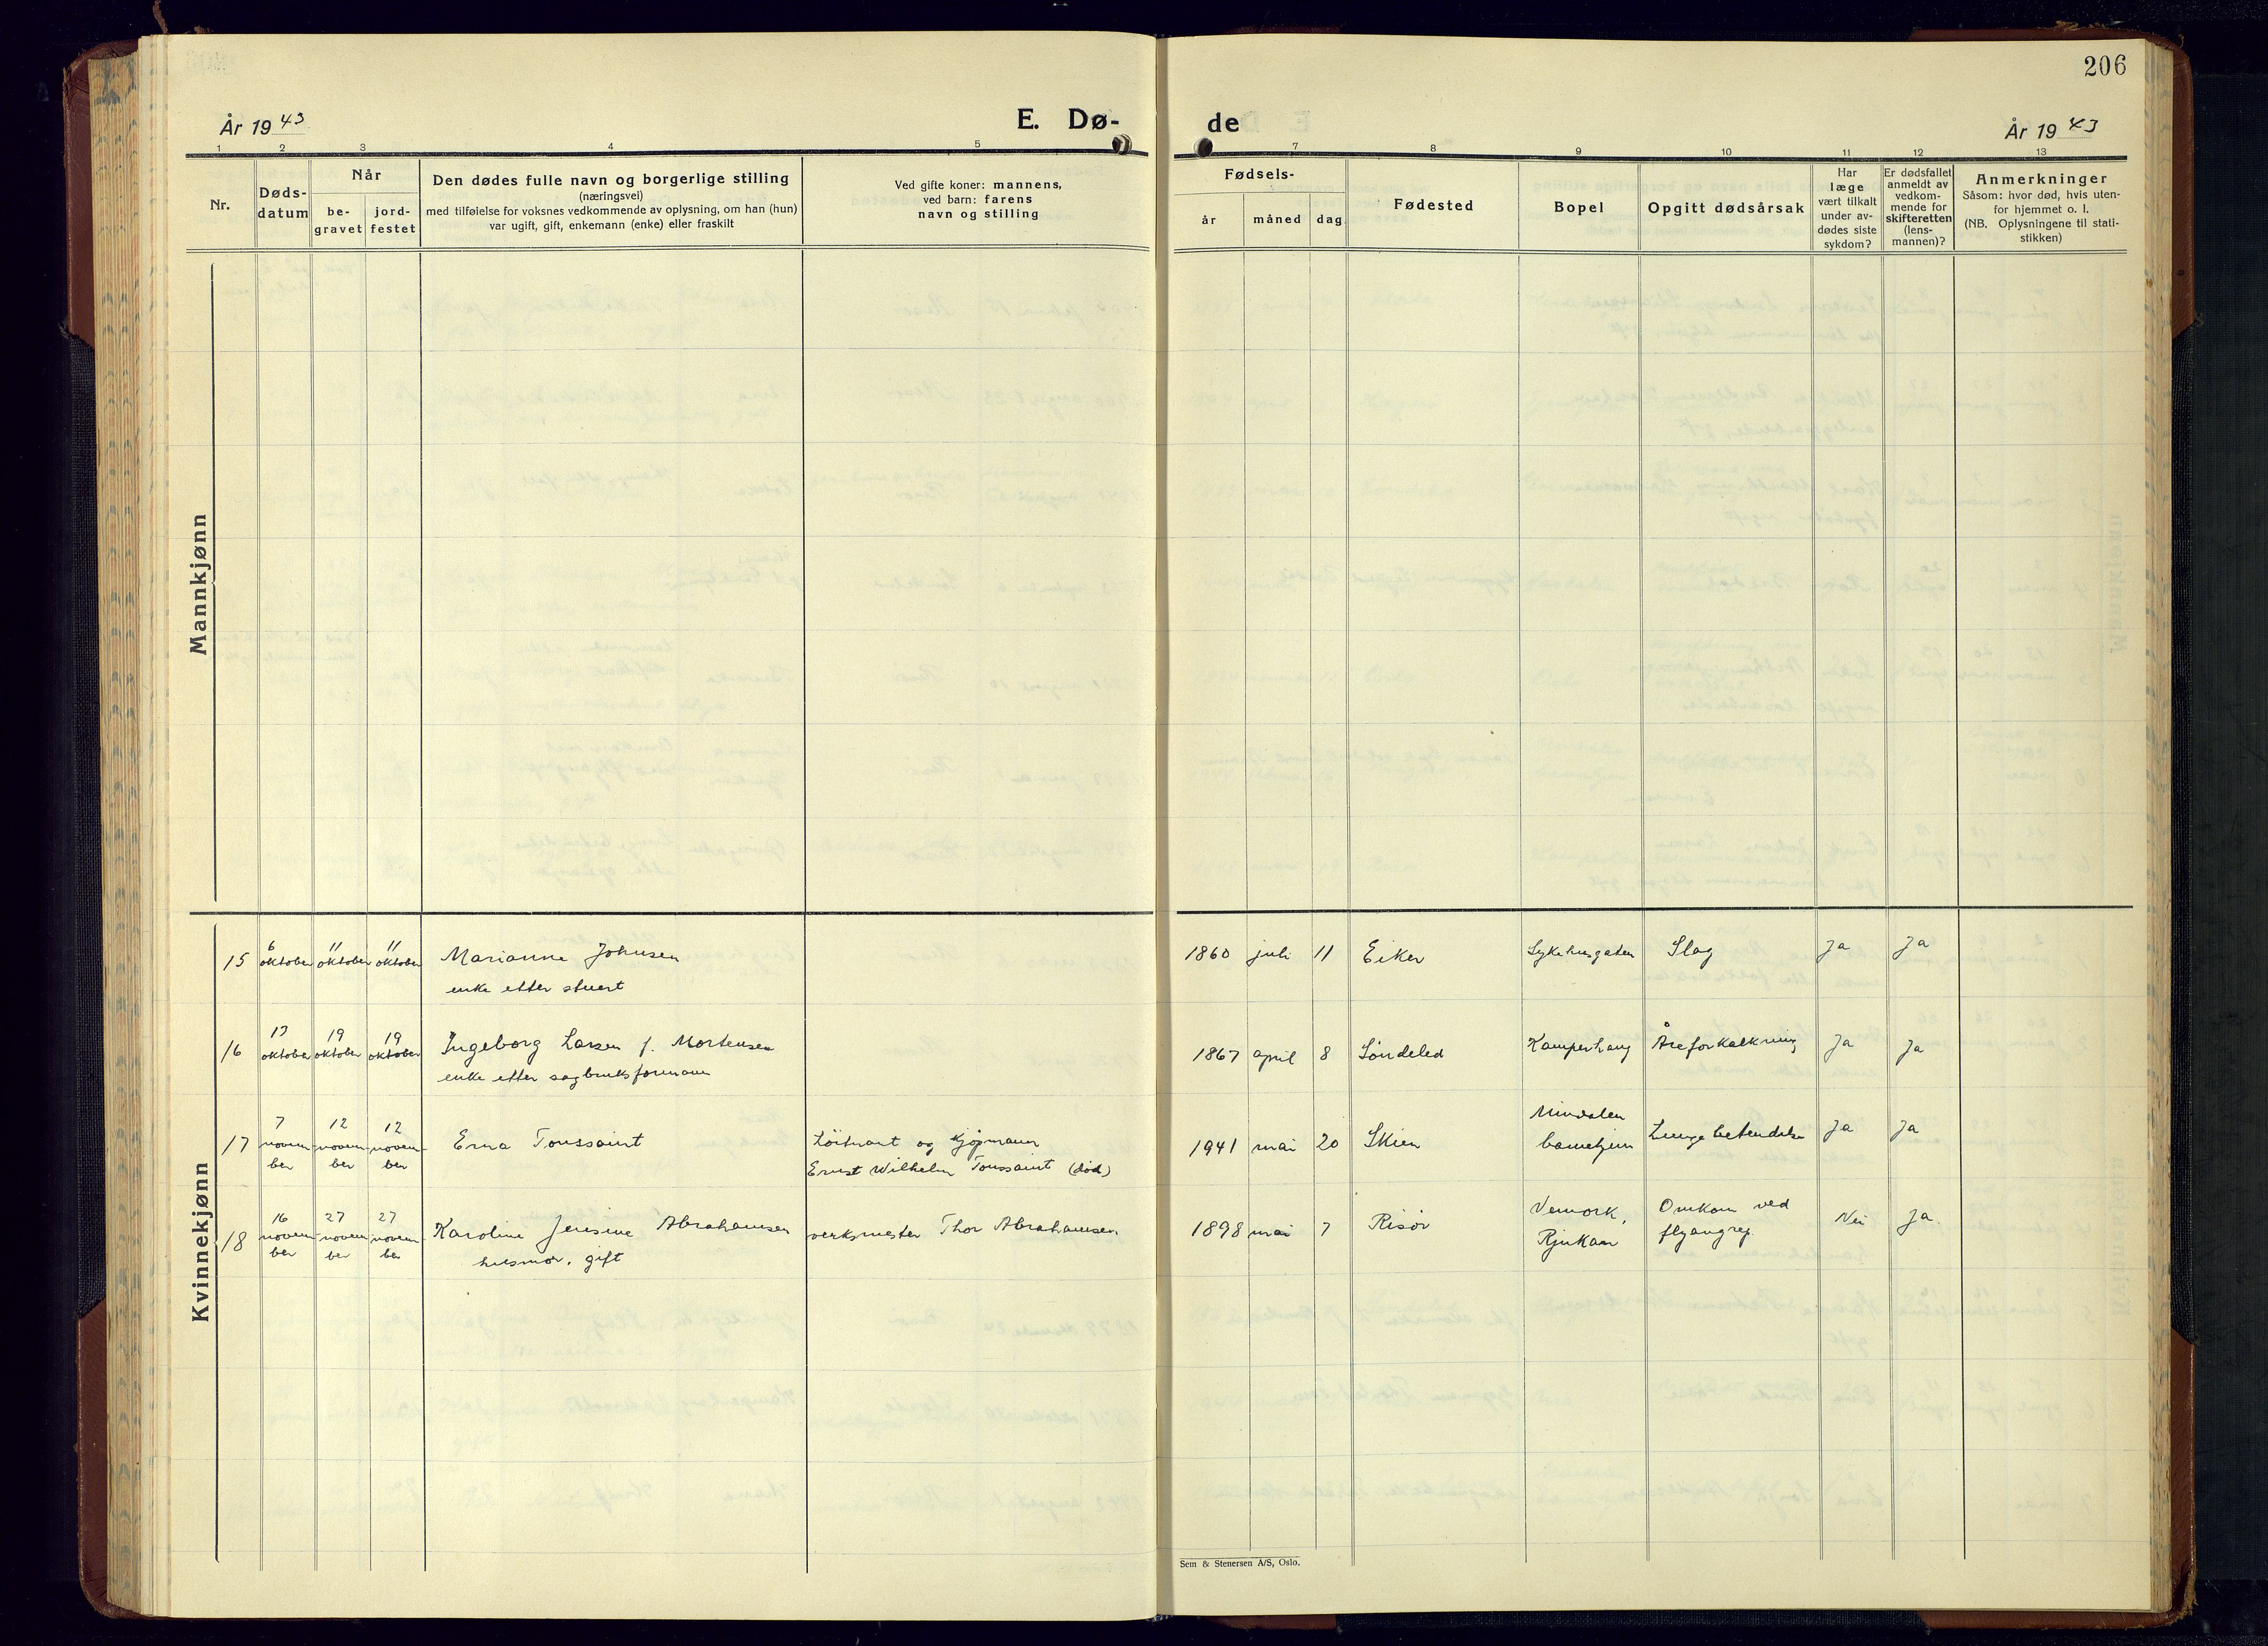 206
År 1943
E. Dø-
de
År 1943
1 2 3 4 5
7 8 9 10 11 12 13
Nr.
Døds-
datum
Når
be-
gravet
jord-
festet
Den dødes fulle navn og borgerlige stilling
(næringsvei)
med tilføielse for voksnes vedkommende av oplysning, om han (hun)
var ugift, gift, enkemann (enke) eller fraskilt
Ved gifte koner: mannens,
ved barn: farens
navn og stilling
Fødsels-
år
måned
dag
Fødested
Bopel
Opgitt dødsårsak
Har
læge
vært tilkalt
under av-
dødes siste
sykdom?
Er dødsfallet
anmeldt av
vedkom-
mende for
skifteretten
(lens-
mannen)?
Anmerkninger
Såsom: hvor død, hvis uten-
for hjemmet o. l.
(NB. Oplysningene til stati-
stikken)
Mannkjønn
Kvinnekjønn
15
6
oktober
11
oktober
11
oktober
Marianne Johnsen
enke etter stuert
1860 juli 11 Eiker
Sykehusgaten
Slag
Ja
Ja
16
17
oktober
19
oktober
19
oktober
Ingeborg Larsen f. Mortensen
enke etter sagbruksformann
1867 april 8 Søndeled
Kamperhaug
Åreforkalkning
Ja
Ja
17
7
novem
ber
12
novem-
ber
12
novem-
ber
Erna Toussaint
Löitnant og kjøpmann
Ernst Wilhelm Toussaint (död)
1941 mai 20 Skien
barnehjem
Lungebetendelse
Ja
Ja
18
16
novem
ber
27
novem
ber
27
novem
ber
Karoline Jensine Abrahamsen
husmor, gift
verksmester Thor Abrahamsen
1898 mai 7 Risör
Vemork,
Rjukan
Omkom ved
flyangrep
Nei
Ja.
Sem & Stenersen A/S, Oslo.